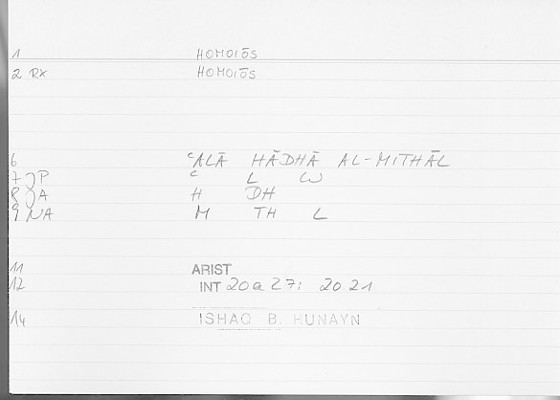 1 HOMOIŌS
2 RX HOMOIŌS
6 ʿALĀ HĀDHĀ AL-MITHĀL
7 JP ʿ L W
8 JA H DH
9 NA M TH L
11 ARIST
12 INT 20a27; 20 21
14 ISHAQ B. HUNAYN